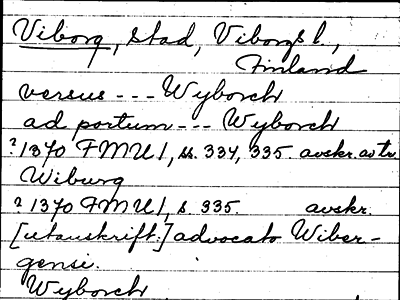 Viborg, stad, Viborgs l.,
Finland
versus --- Wyborch
ad portum --- Wyborch
?1370 FMU 1, ss. 334, 335. avskr. av tr.
Wiburg
?1370 FMU 1, s. 335. avskr.
[utanskrift:] advocato Wiber-
gensi.
Wyborch